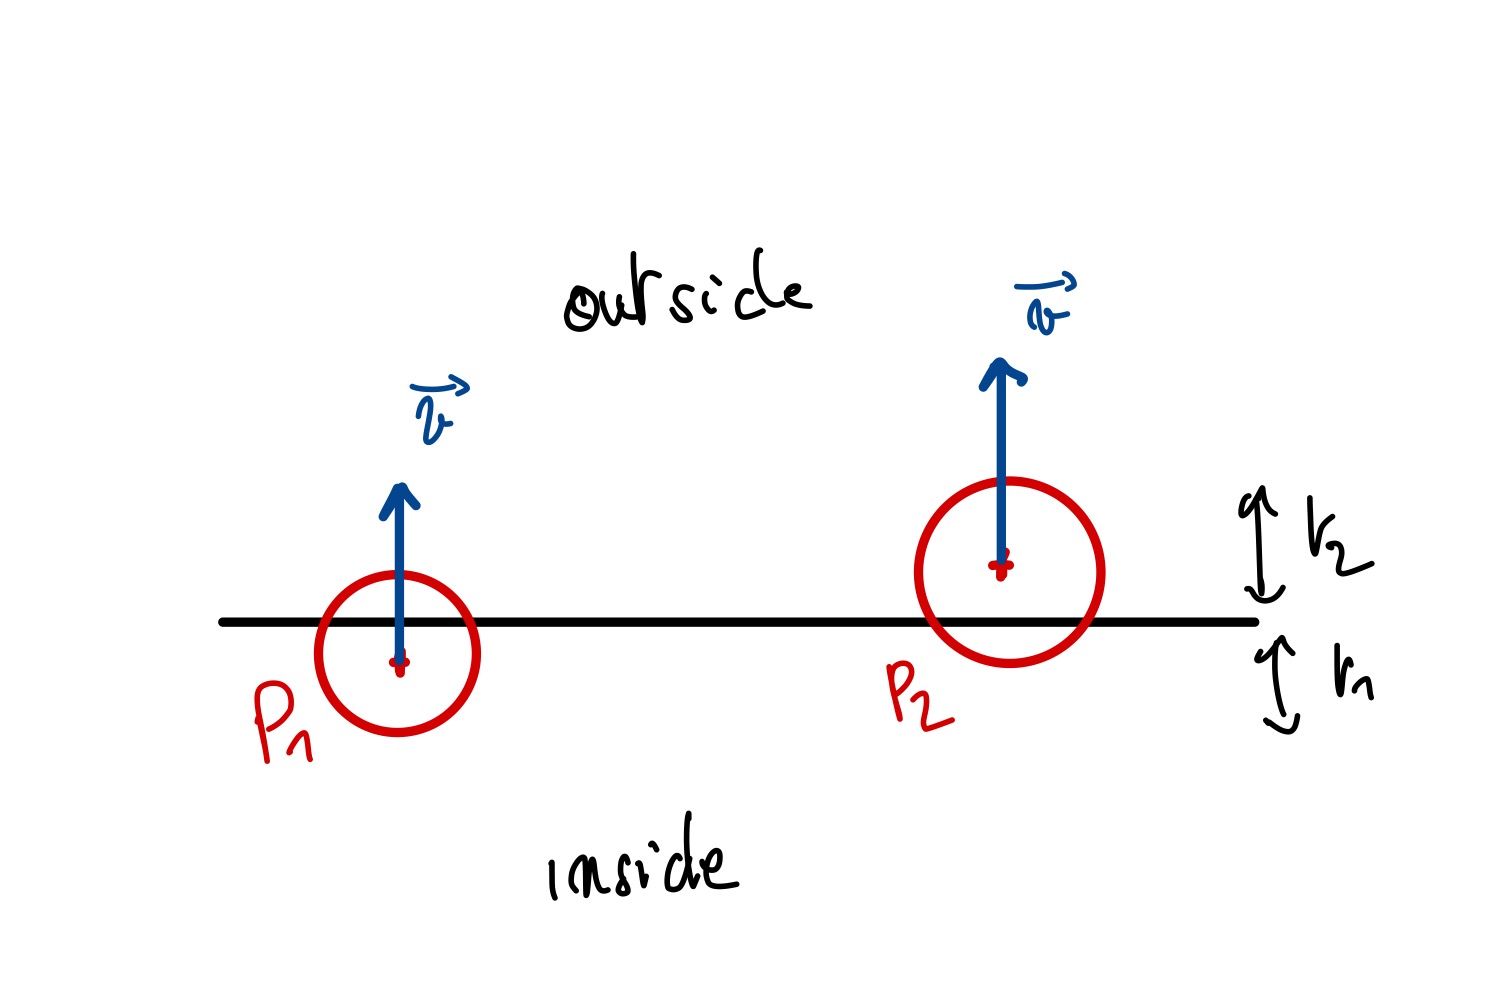 outside
v
v
r2
r1
P1
P2
inside